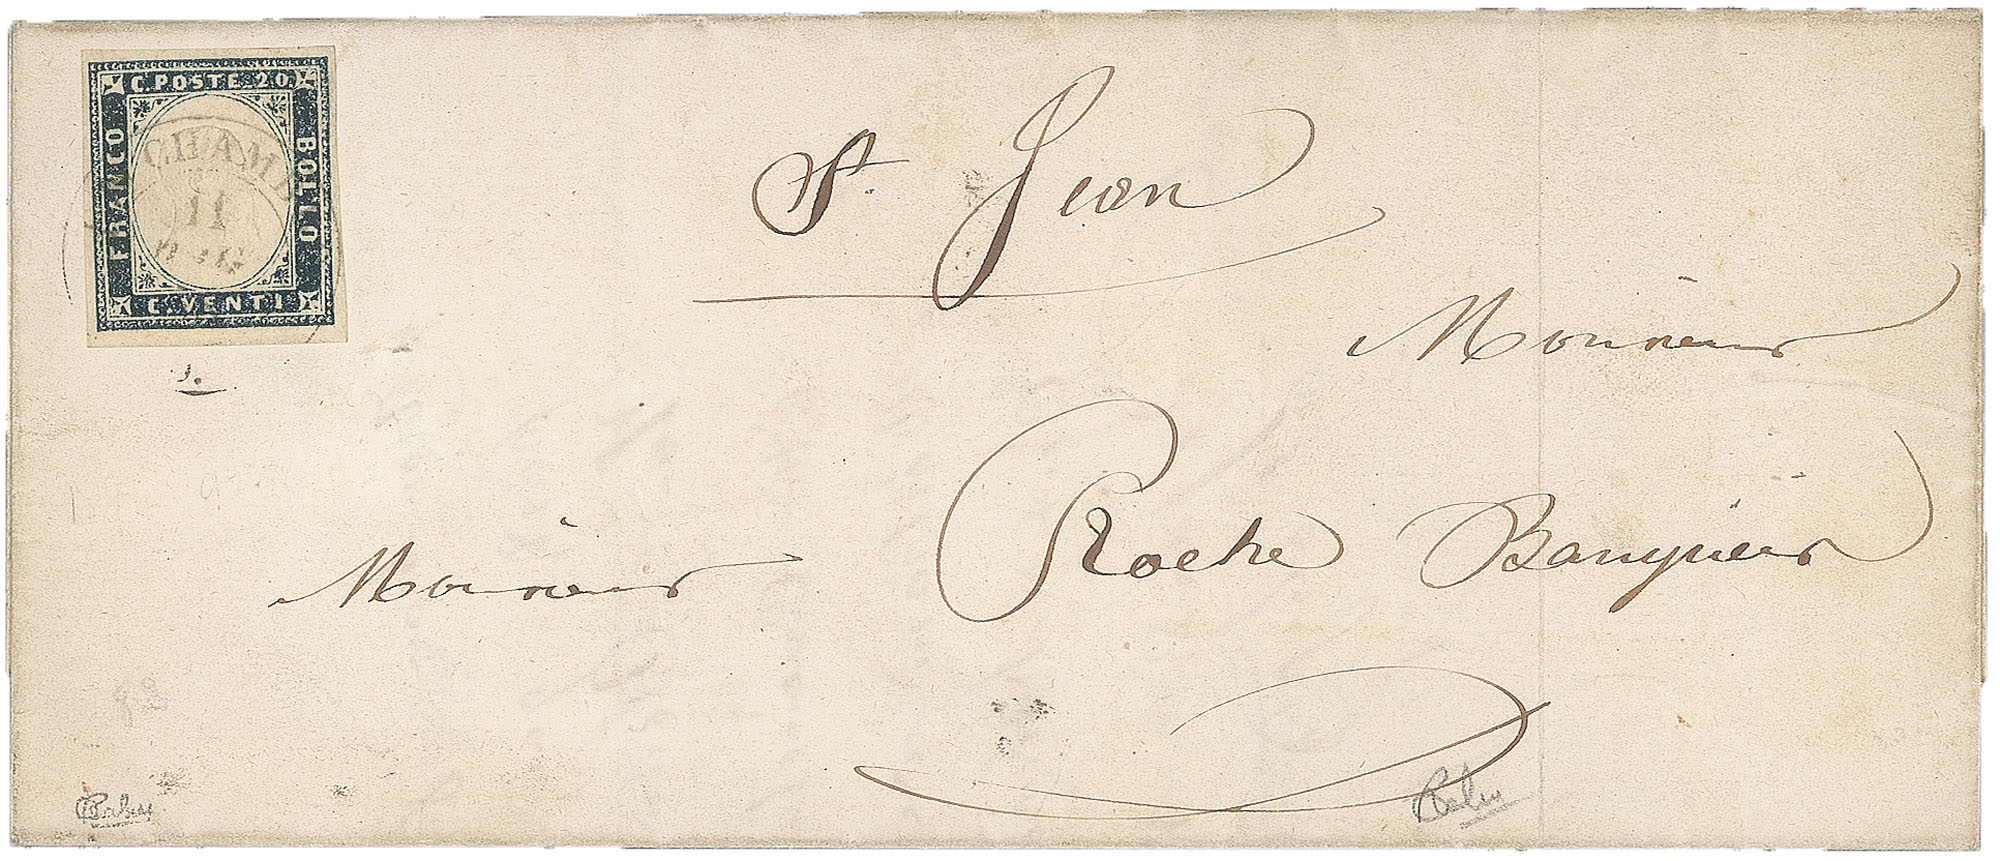 C. POSTE 20
FRANCO
BOLLO
C. VENTI
CHAMB
11
St. Jean
Monsieur
Monsieur Roche Banquier